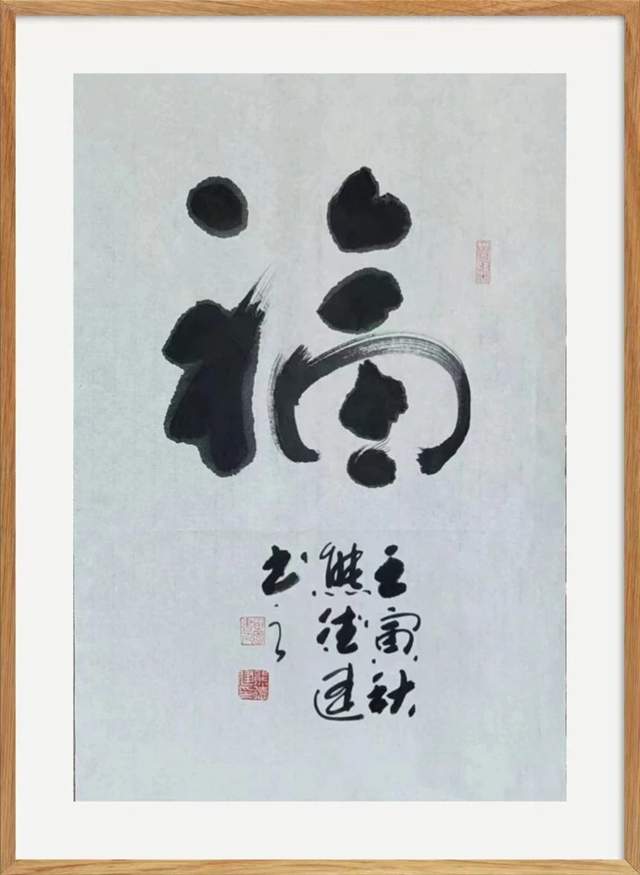 福
壬寅秋
熊德建
书之